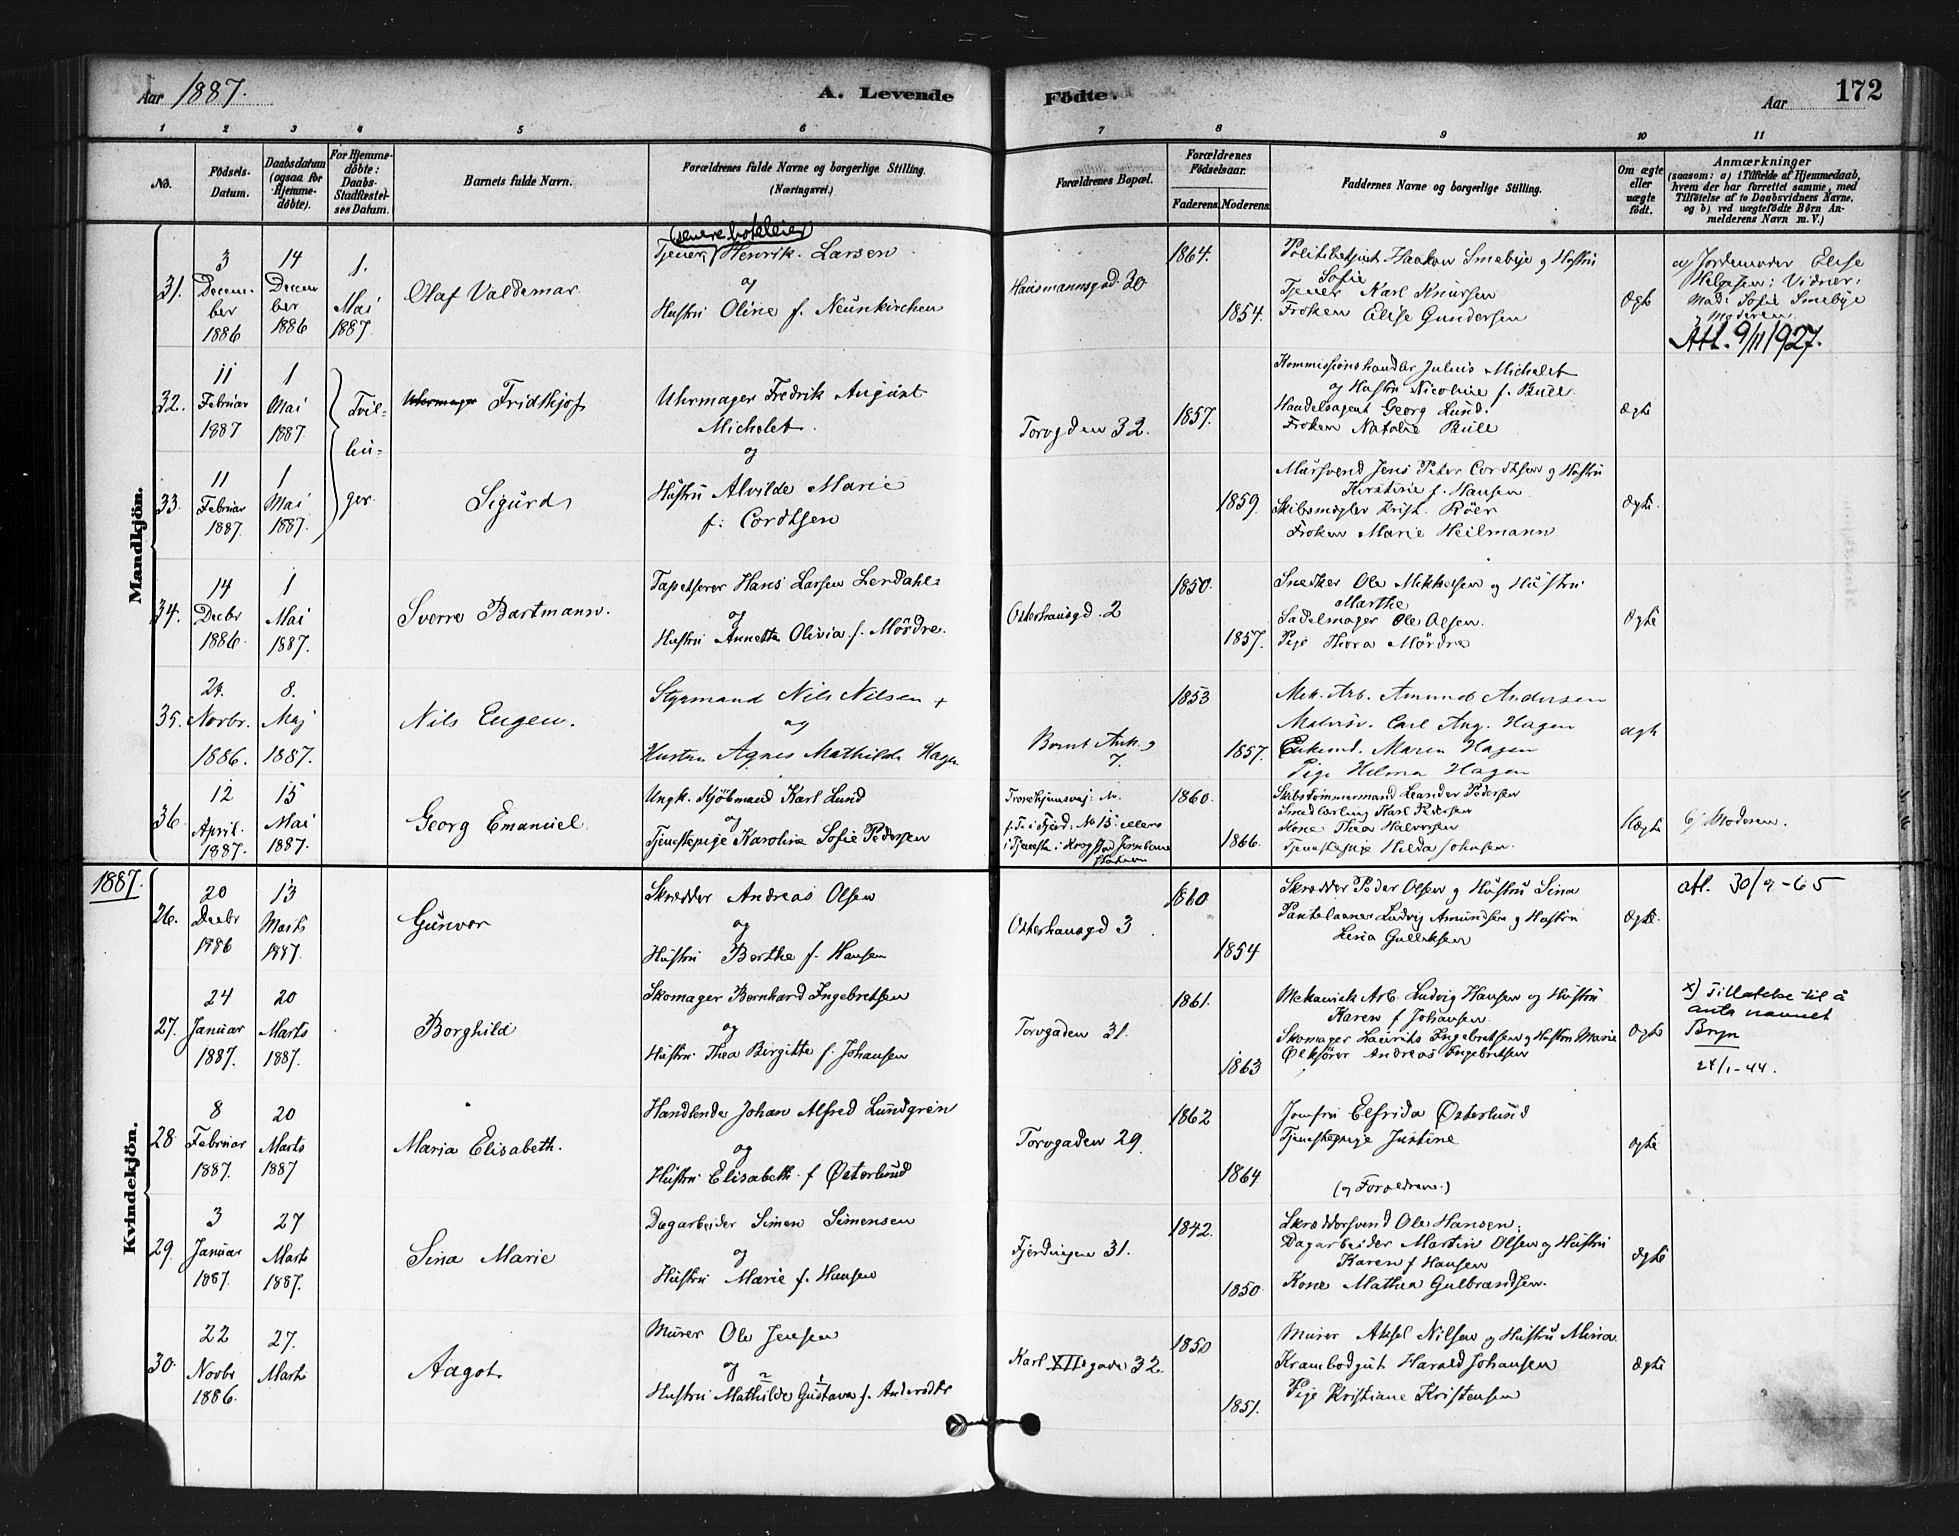 Aar 1887. A. Levende Födte. Aar 172
1 2 3 4 5 6 7 8 9 10 11
No.
Födsels-
Datum.
Daabsdatum
(ogsaa for
Hjemme-
döbte).
For Hjemme-
döbte:
Daabs-
Stadfæstel-
ses Datum.
Barnets fulde Navn.
Forældrenes fulde Navne og borgerlige Stilling.
(Næringsvei.)
Forældrenes Bopæl.
Forældrenes
Födselsaar.
Faderens. Moderens.
Faddernes Navne og borgerlige Stilling.
Om ægte
eller
uægte
födt.
Anmærkninger
(saasom: a) i Tilfælde af Hjemmedaab,
hvem der har forrettet samme, med
Tilföielse af to Daabsvidners Navne,
og b) ved uægtefödte Börn An-
melderens Navn m. V.)
Mandkjön.
31.
3
Decem-
ber
1886
14
Decem
ber
1886
1.
Mai
1887.
Olaf Valdemar
(senere hoteleier)
Tjener Henrik Larsen
og
Hustru Oline f. Neunkirchen
Hausmannsgd. 30
1864.
1854.
Politibetjent Haakon Smebye og Hustru
Sofie
Tjener Karl Knudsen
Frøken Elise Gundersen
Ægte
a) Jordemoder Elise
Helgesen; Vidner:
Mad. Sofie Smebye
og Moderen
Att. 9/11 1927.
32.
11
Februar
1887
1
Mai
1887.
Tvil-
lin-
ger
Uhrmager Fridthjof
Uhrmager Fredrik August
Michelet.
og
Hustru Alvilde Marie
f: Cordtsen
Torvgaden 32.
1857.
1859.
Kommissionshandler Julius Michelet
og Hustru Nicoline f. Bull.
Handelsagent Georg Lund.
Frøken Natalie Bull
Ægte
33.
11
Februar
1887.
1
Mai
1887.
Sigurd
Mursvend Jens Peter Cordtsen og Hustru
Kirstine f. Hansen
Skibsmægler Krist. Röer
Frøken Marie Heilmann
Ægte.
34.
14
Decbr
1886.
1
Mai
1887.
Sverre Bartmann.
Tapetserer Hans Larsen Lerdahl
og
Hustru Annette Olivia f. Mördre.
Osterhausgd. 2
1850.
1857.
Snedker Ole Mikkelsen og Hustru
Marthe
Sadelmager Ole Olsen.
Pige Thora Mördre
Ægte
35.
24.
Novbr.
1886.
8.
Maj
1887.
Nils Eugen.
Styrmand Nils Nilsen +
og
Hustru Agnes Mathilde Hagen
Bernt Ank. g
7.
1853
1857.
Mek. Arb. Amund Andersen
Carl Aug. Hagen
Enkemd. Maren Hagen
Pige Hilma Hagen
ægte
36.
12
April.
1887.
15
Mai
1887.
Georg Emanuel
Ungk. Kjöbmand Karl Lund
og
Tjenestepige Karoline Sofie Pedersen
Trondhjemsvej. No.
1860.
1866.
Skibstömmermand Leander Pedersen
Smedlærling Karl Pedersen
Kone Thea Halvorsen
Tjenestepige Hilda Johnsen.
Uægte
b) Moderen.
1887.
Kvindekjön.
26.
20
Decbr
1886
13
Marts
1887.
Gunvor
Skrædder Andreas Olsen
og
Hustru Berthe f. Hansen
Osterhausgd 3
1860
1854
Skrædder Peder Olsen og Hustru Lina
Pantelaaner Ludvig Amundsen og Hustru
Lena Gulliksen
Ægte.
att. 30/9-65
27.
24
Januar
1887.
20
Marts
1887.
Borghild
Skomager Bernhard Ingebretsen
og
Hustru Thea Birgitte f. Johansen
Torvgaden 31.
1861.
1863
Mekanisk Arb. Ludvig Hansen og Hustru
Karen f Johansen.
Skomager Laurits Ingebretsen og Hustru Marie
Ølkjører Andreas Ingebretsen
Ægte
x) Tillatelse til å
anta navnet
Bryn
24/1-44.
28
8
Februar
1887.
20
Marts
1887
Maria Elisabeth.
Handlende Johan Alfred Lundgren
og
Hustru Elisabeth f Østerlund
Torvgaden 29.
1862
1864
Jomfru Elfrida Østerlund
Tjenestepige Justine
(og Forældrene.)
ægte
29
3
Januar
1887.
27
Marts
1887.
Sina Marie
Dagarbeider Simen Simensen
og
Hustru Marie f. Hansen
Fjerdingen 31.
1842.
1850
Skræddersvend Ole Hansen.
Dagarbeider Martin Olsen og Hustru
Karen f Hansen
Kone Mathea Gulbrandsen.
Ægte
30.
22
Novbr
1886.
27.
Marts
Aagot
Murer Ole Jensen
og
Hustru Mathilde Gustava f. Andersdtr
Karl XII's gade 32.
1850
1851.
Murer Aksel Nilsen og Hustru Mina
Krambodgut Harald Johansen
Pige Kristiane Kristensen
Ægte